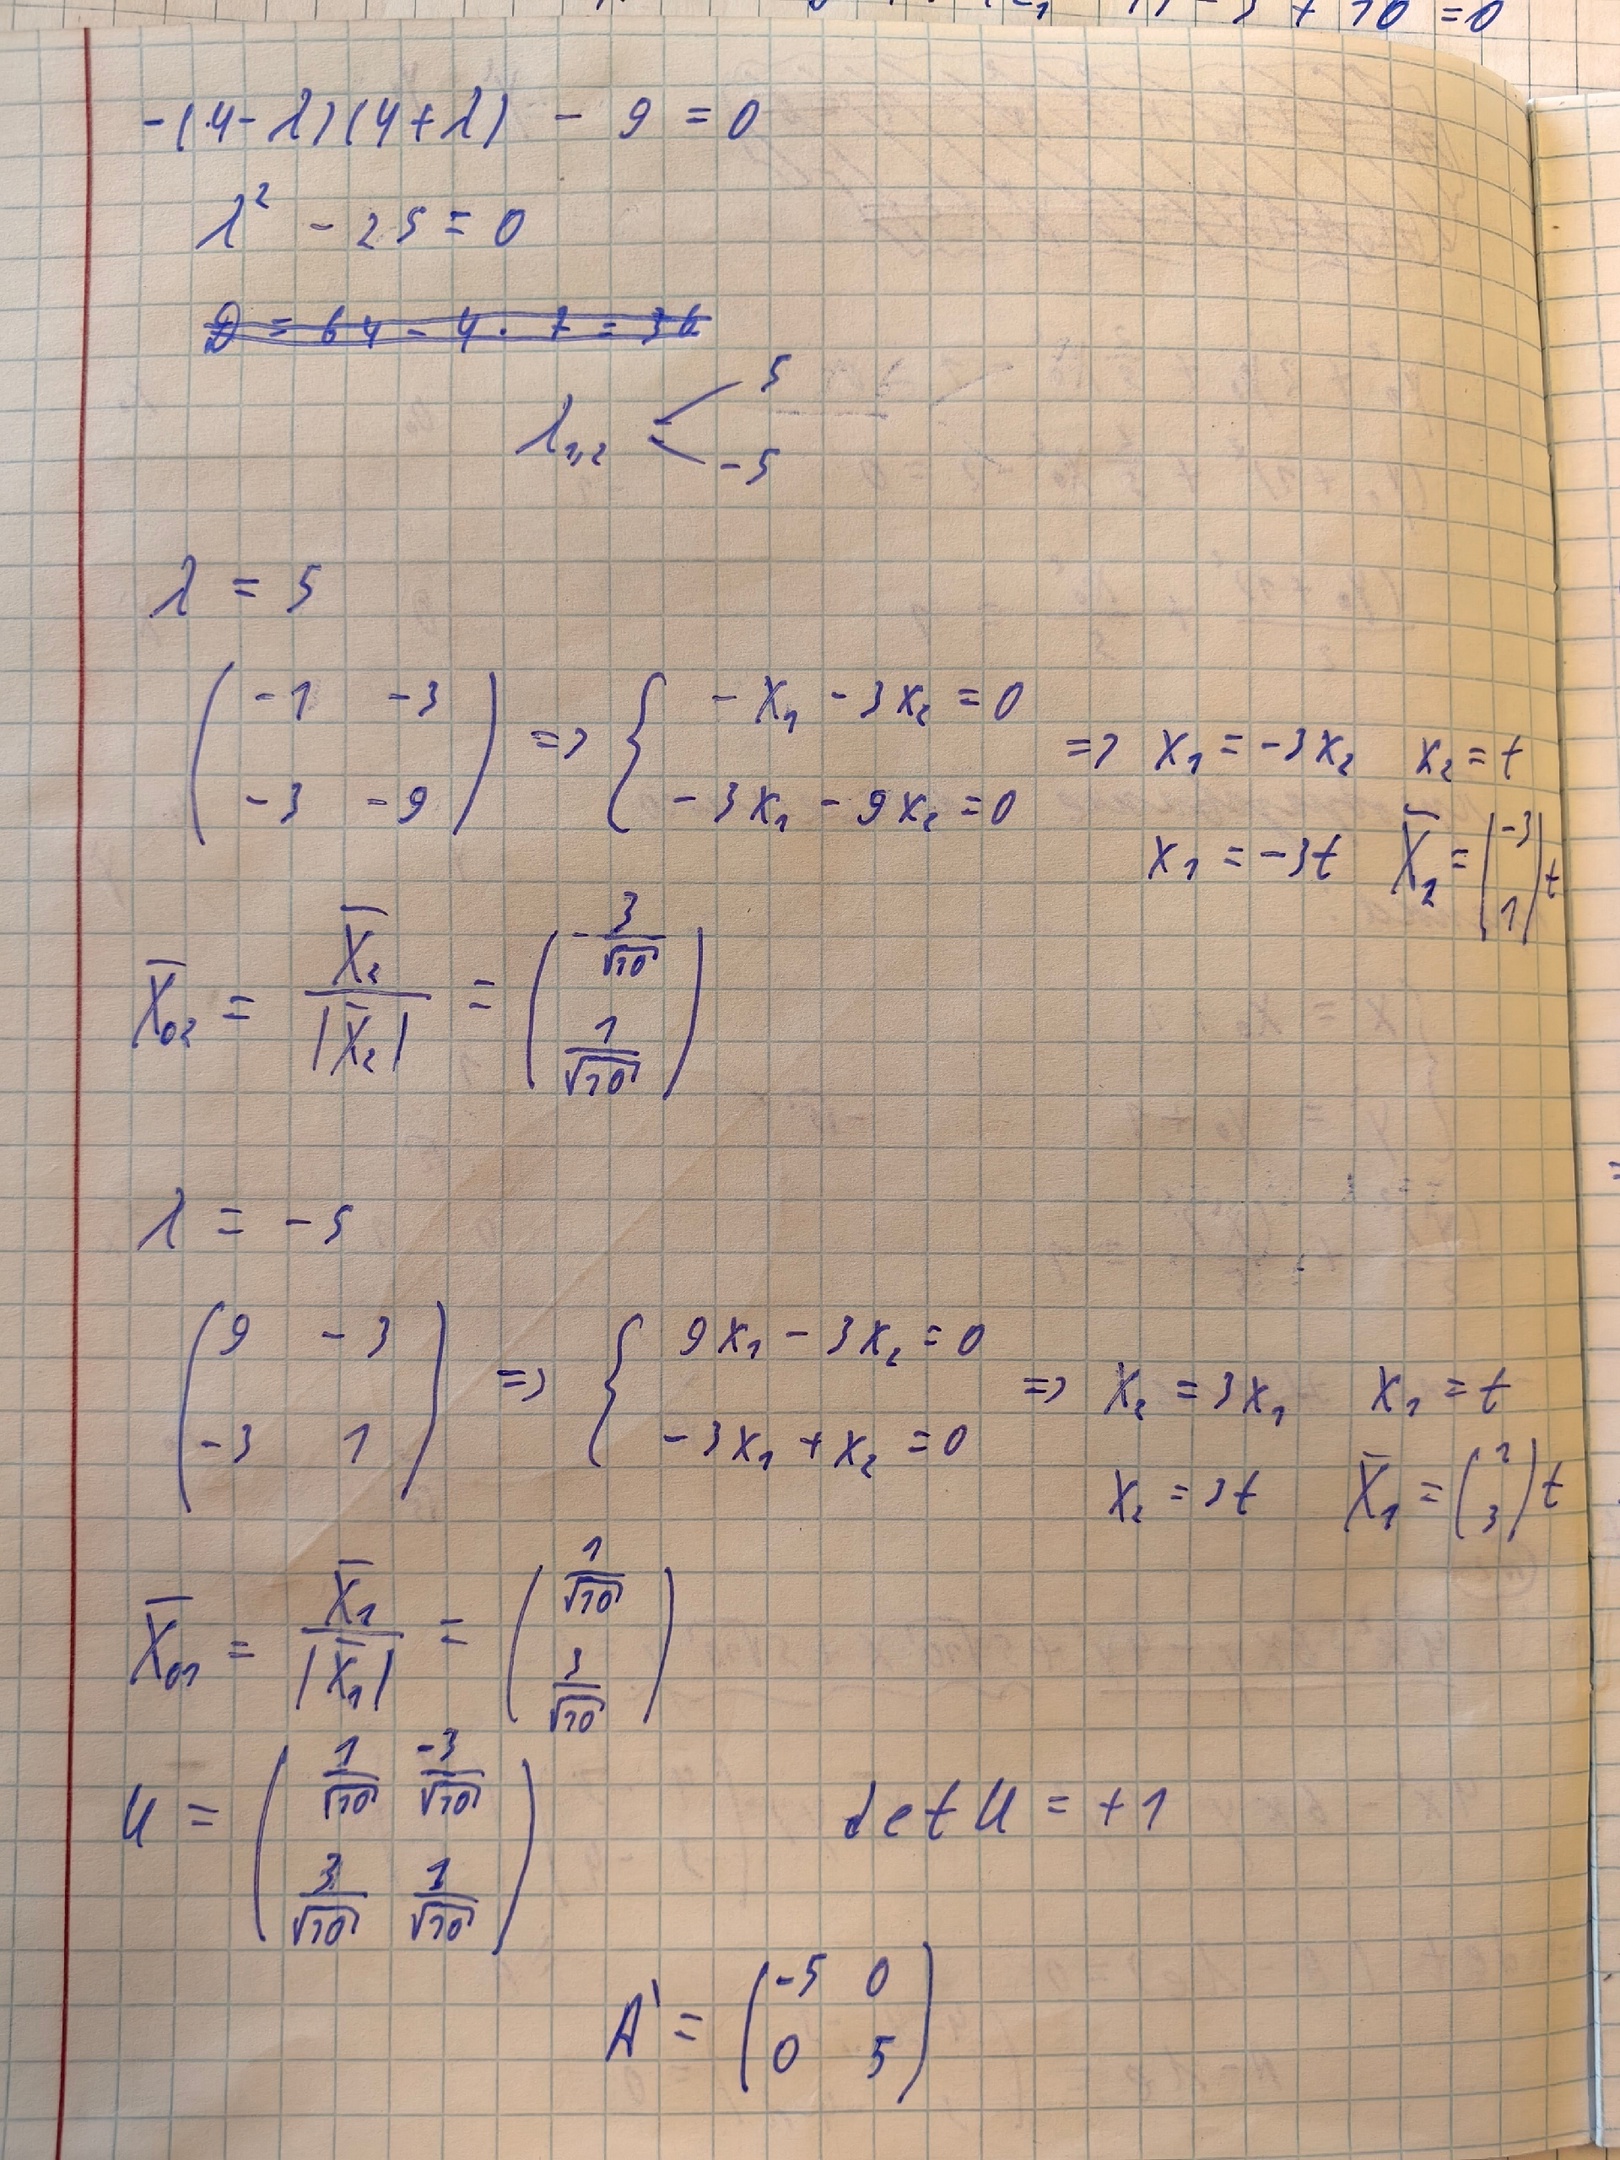 -(4-λ)(4+λ) - 9 = 0
λ² - 25 = 0
D = 64 - 4 · 7 = 36
λ₁,₂ = 5
-5
λ = 5
( -1 -3 ) => { -x₁ - 3x₂ = 0 => x₁ = -3x₂ x₂ = t
( -3 -9 ) { -3x₁ - 9x₂ = 0 x₁ = -3t X̄₂ = ( -3 1 ) t
X̄₀₂ = X̄₂ / |X̄₂| = ( -3/√10 1/√10 )
λ = -5
( 9 -3 ) => { 9x₁ - 3x₂ = 0 => x₂ = 3x₁ x₁ = t
( -3 1 ) { -3x₁ + x₂ = 0 x₂ = 3t X̄₁ = ( 1 3 ) t
X̄₀₁ = X̄₁ / |X̄₁| = ( 1/√10 3/√10 )
U = ( 1/√10 -3/√10 3/√10 1/√10 ) det U = +1
A' = ( -5 0
0 5 )